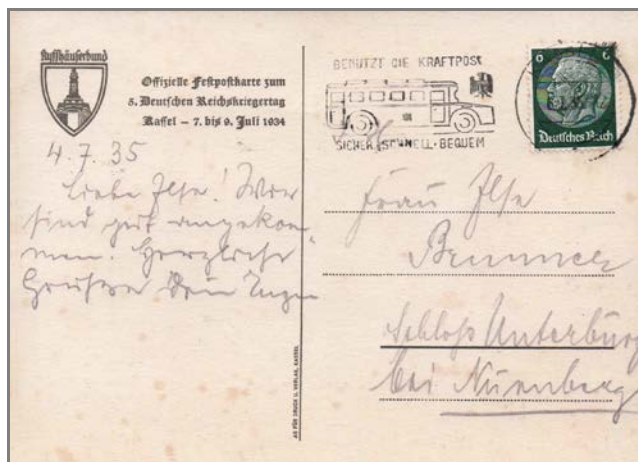 Kyffhäuserbund
Offizielle Festpostkarte zum
5. Deutschen Reichskriegertag
Kassel – 7. bis 9. Juli 1934
BENUTZT DIE KRAFTPOST
SICHER, SCHNELL, BEQUEM
6 6
Deutsches Reich
4.7.35
Liebe Ilse! Wir
sind gut angekom-
men. Herzliche
Grüße Dein
Frau Ilse
Brunner
Schloß Unterbürg
bei Nürnberg